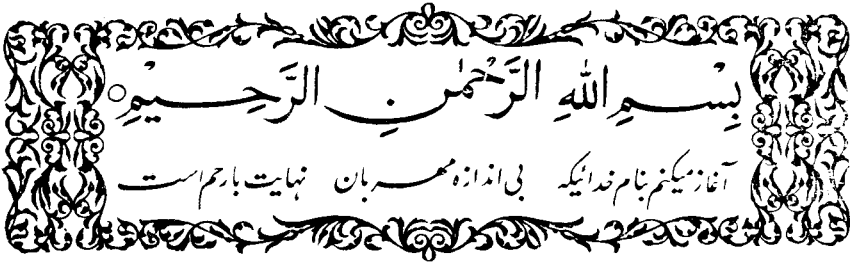 بِسْمِ اللهِ الرَّحْمٰنِ الرَّحِيْمِ
آغاز میکنم بنام خدائیکه بی اندازه مهربان نهایت با رحم است